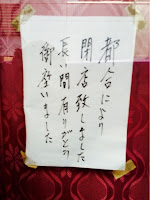 都合により
閉店致しました
長い間有りがとう
御座いました